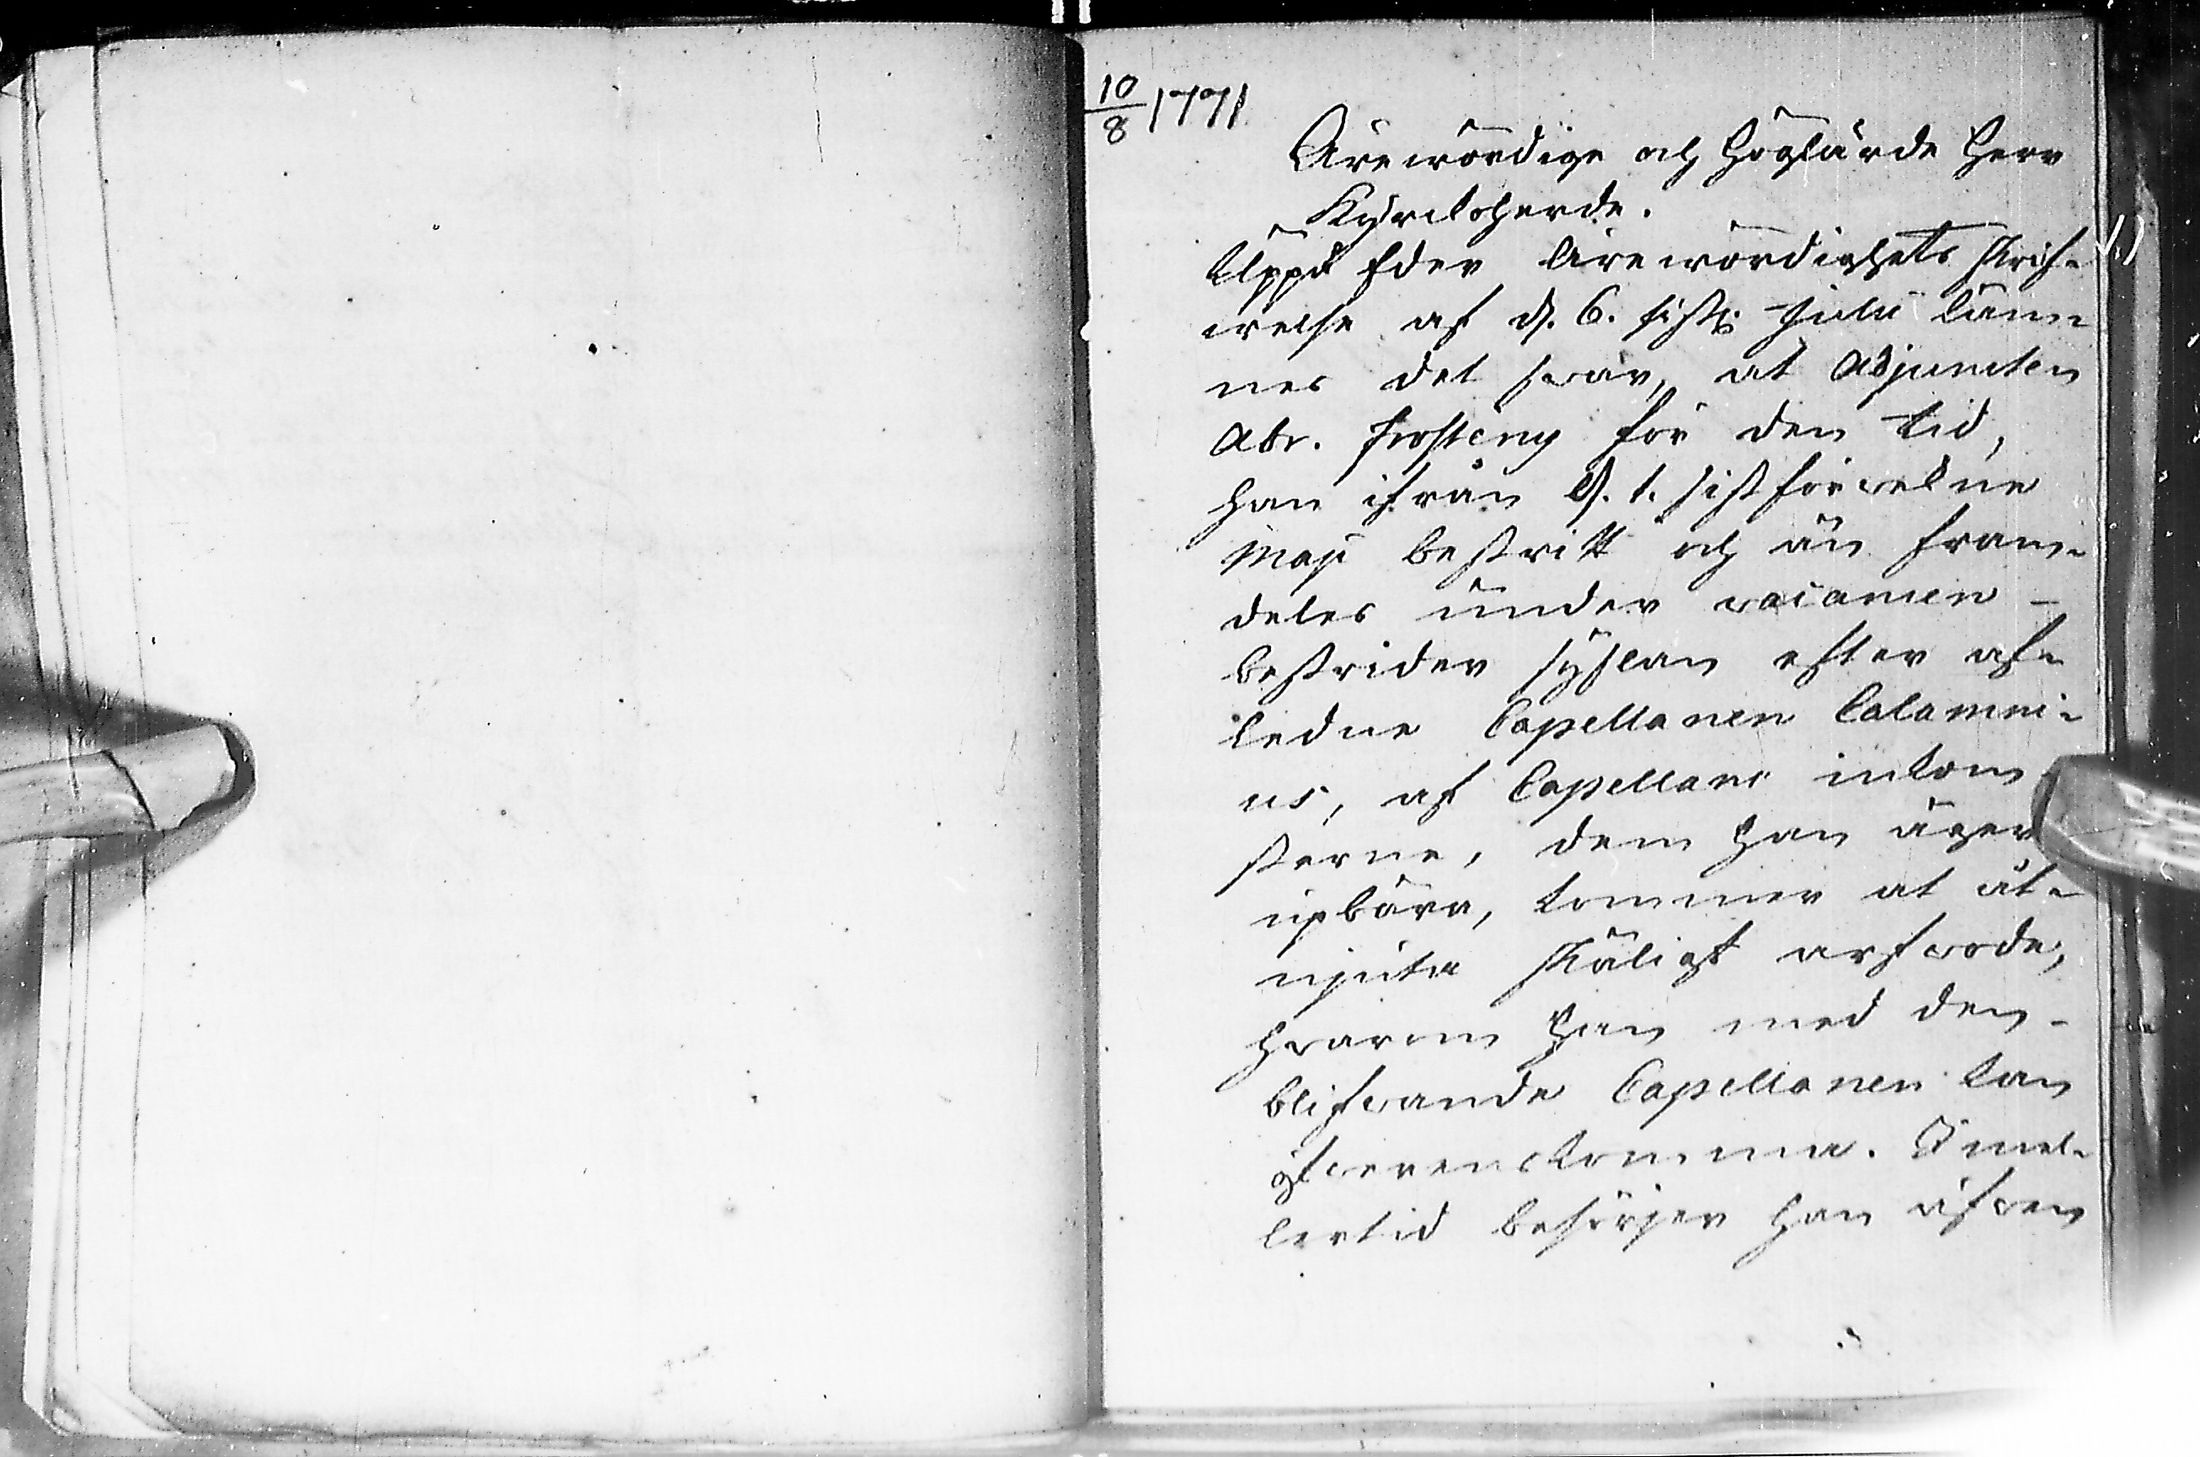 10/8 1771
Ärewördige och Höglärde Herr
Kyrckoherde.
Uppå Eder Ärewördighets skrif-
welse af d. 6. sistl. Julii läm-
nes det swar, at Adjuncten
Abr. Frosteng för den tid,
han ifrån d. 1. sistförvekne
Maji bestridt och än fram-
deles under vacancen
bestrider sysslan efter af-
ledne Capellanen Calamni-
us, af Capellans inkom-
sterne, dem han äger
upbära, kommer at åt-
njuta skäligt arfwode,
hwarom han med den
blifwande Capellanen kan
öfwerenskomma. Imel-
lertid besörjer han äfwen